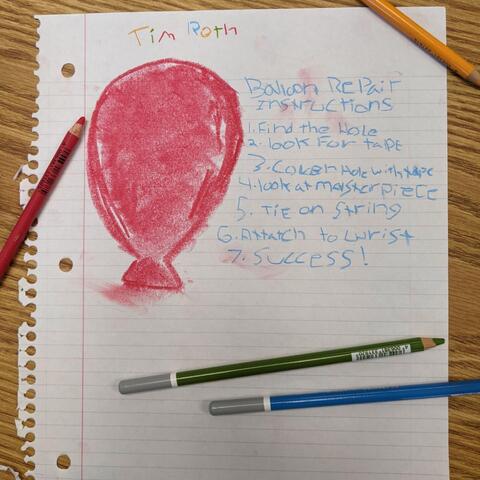 Tim Roth
Balloon RePair
InStructions
1. Find the Hole
2. look For tape
3. Cover Hole with tape
4. look at master piece
5. TIE on String
6. Attatch to Lwrist
7. Success!